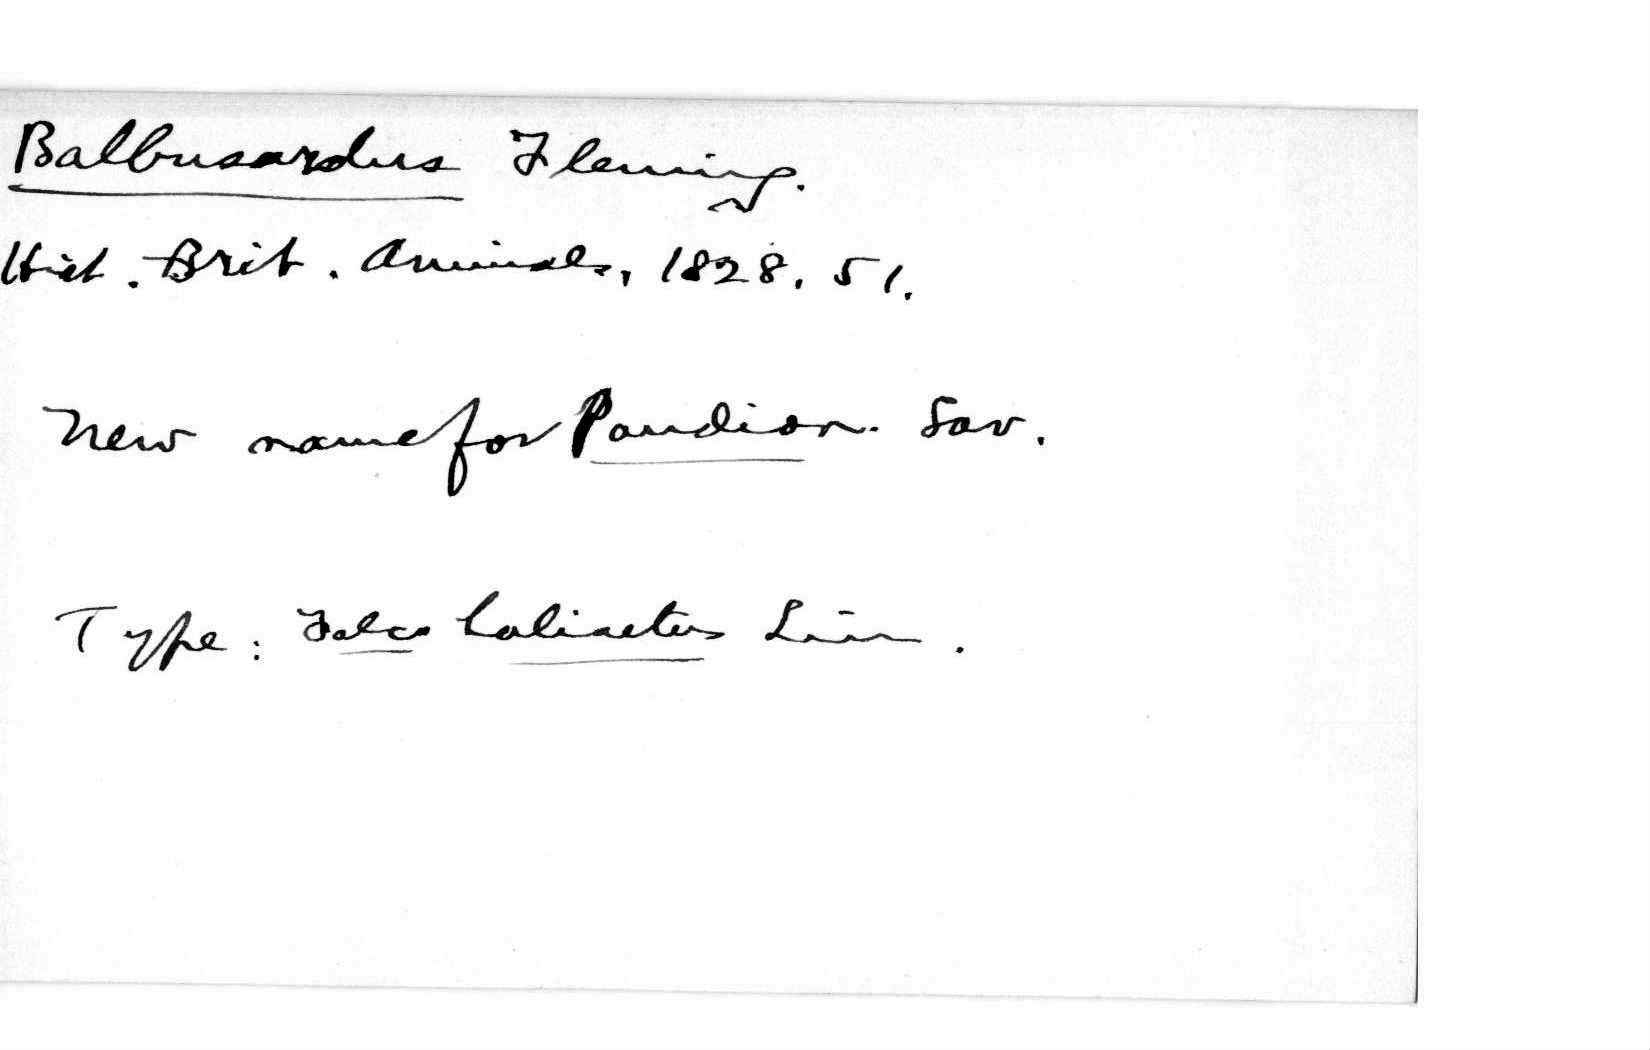 Balbusardus Fleming.
Hist. Brit. Animals, 1828, 51.
New name for Pandion. Sav.
Type: Falco haliaetus Linn.